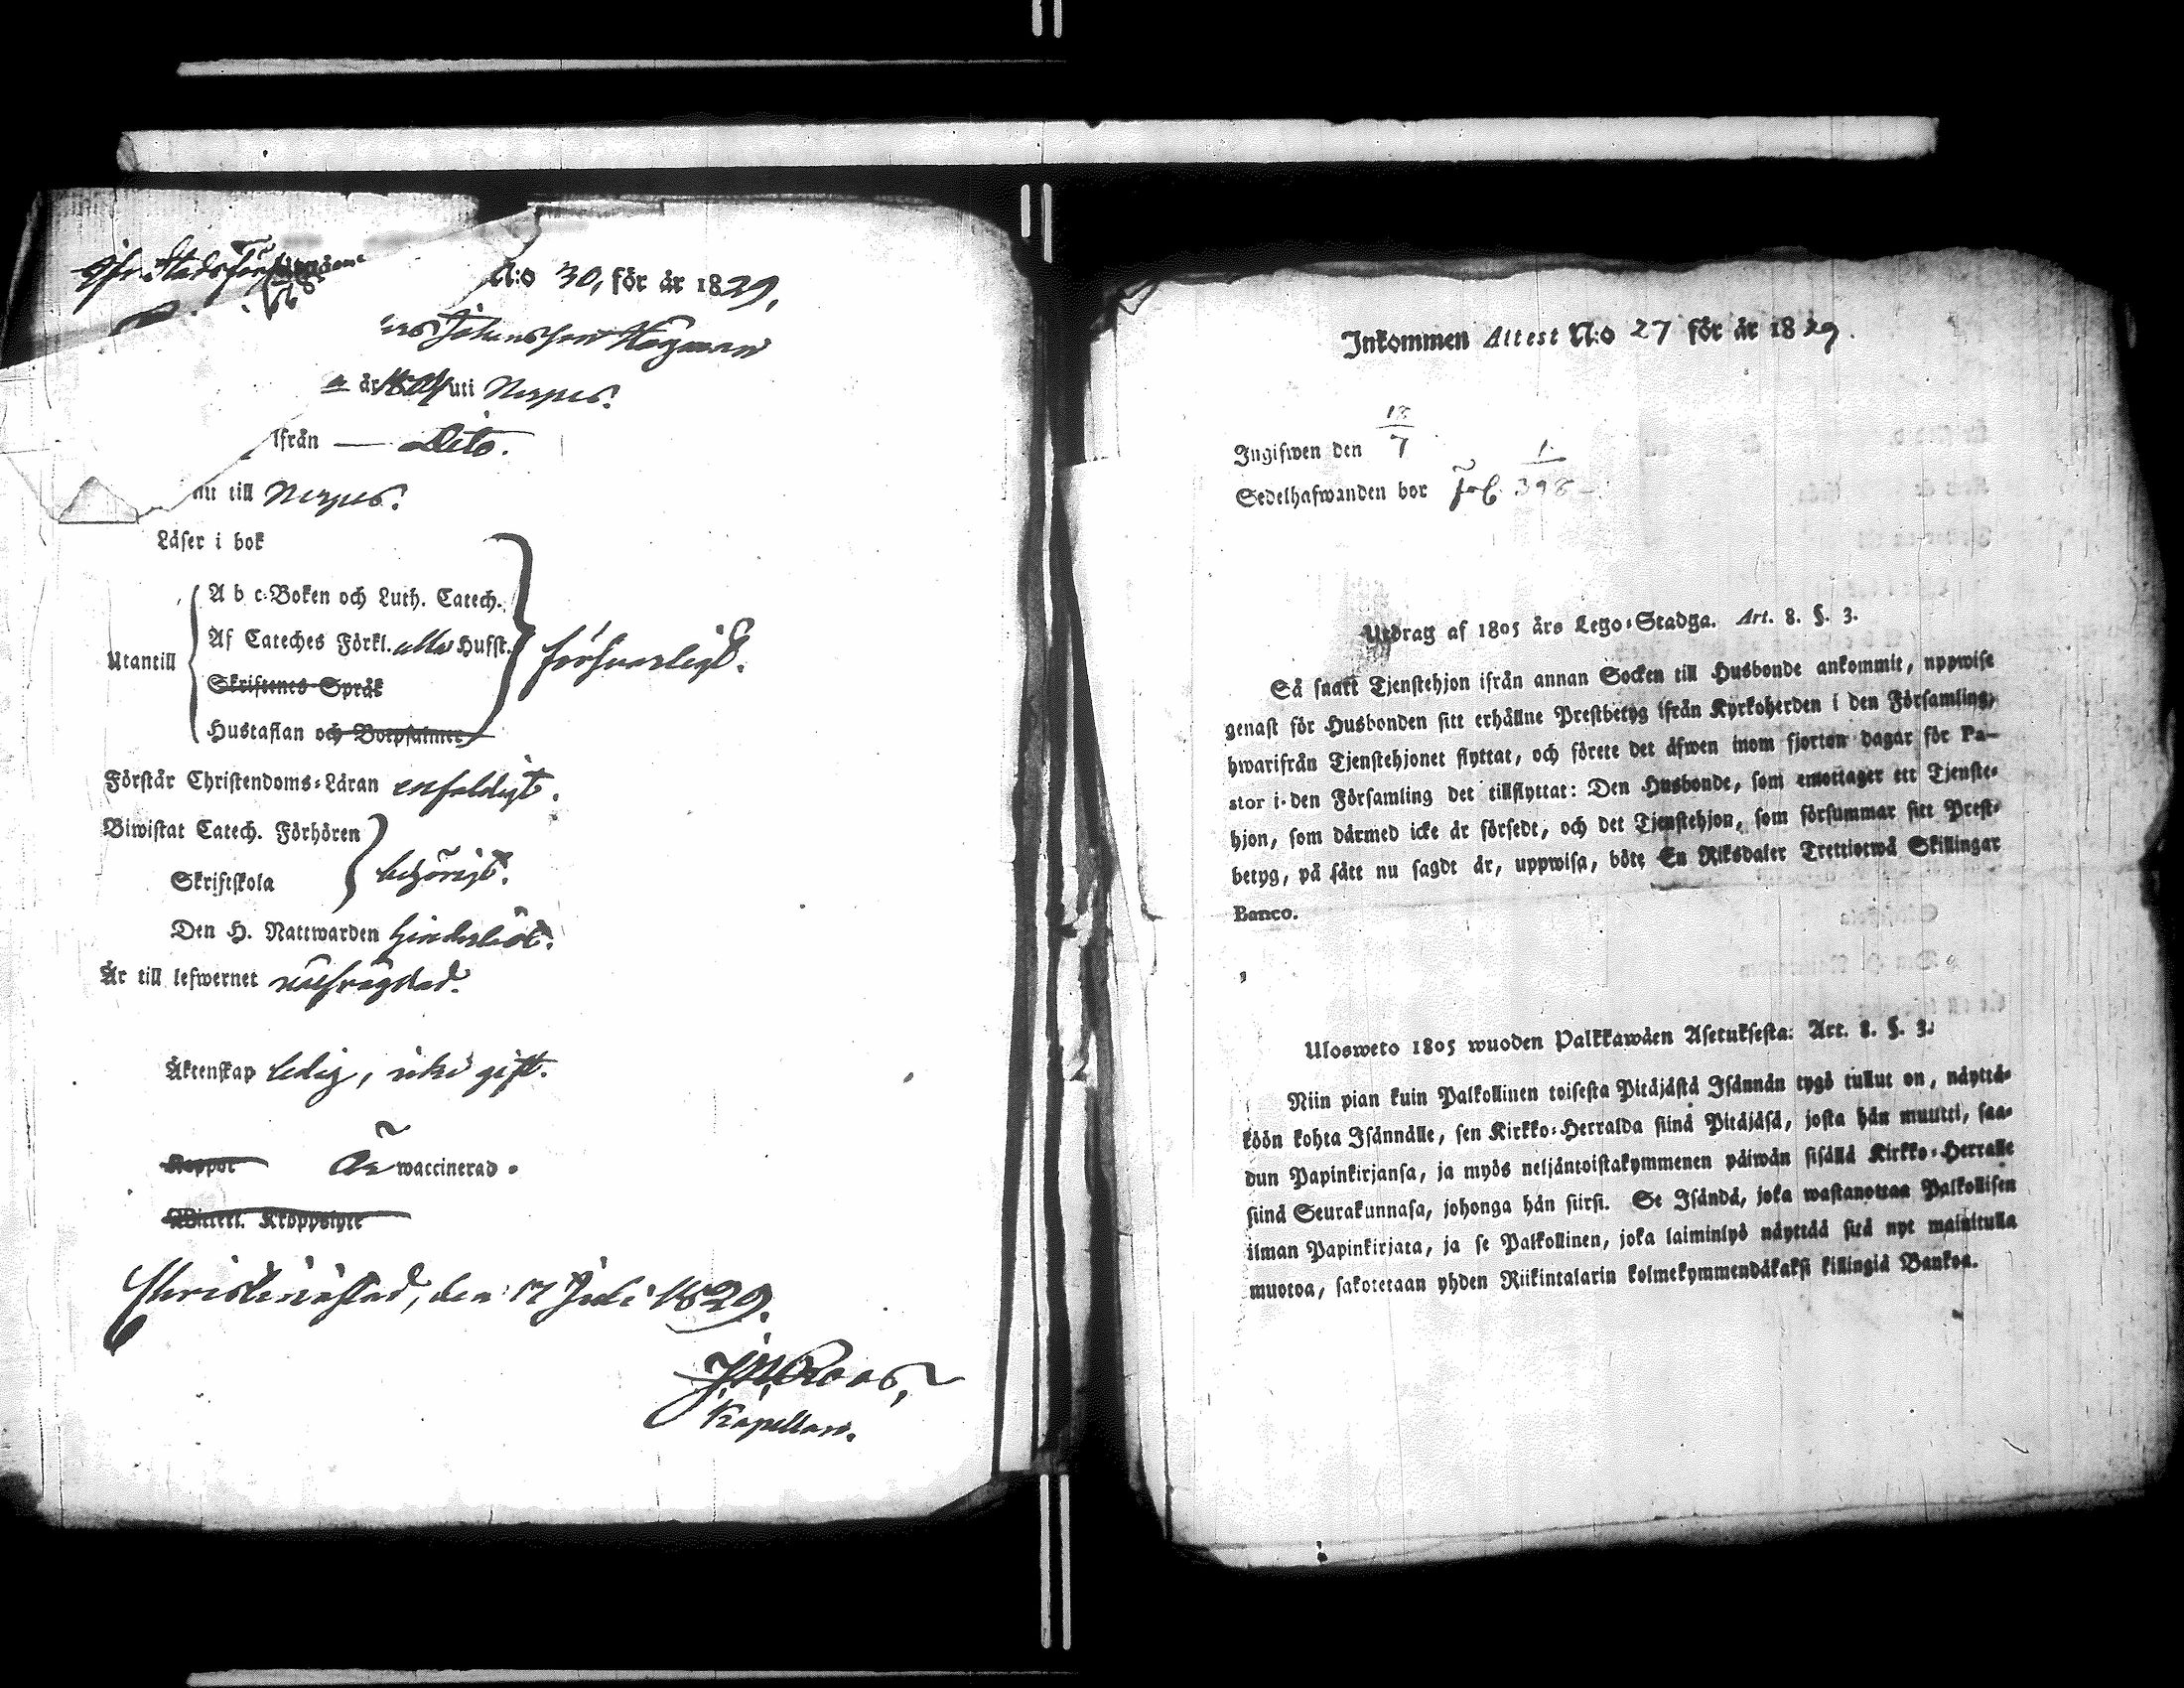 N:o 30, för år 1829,
Johansson Hägman
år 1804 uti Nerpes.
ifrån — Dito.
till Nerpes.
Läser i bok
A b c-Boken och Luth. Catech.
Utantill
Af Cateches Förkl. alla Husst.
försvarligt.
Skriftenes Språk
Hustaflan och Botpsalmer
Förstår Christendoms-Läran enfaldigt.
Biwistat Catech. Förhören
behörigt.
Skriftskola
Den H. Nattwarden
Är till lefwernet välfrägdad.
Äktenskap ledig, icke gift.
Koppor Är waccinerad.
Christinæstad, den 17 Juli 1829.
Roos,
Kapellan.
Inkommen Attest N:o 27 för år 1829.
Ingifwen den 18/7
Sedelhafwanden bor Fol. 398
Utdrag af 1805 års Lego-Stadga. Art. 8. §. 3.
Så snart Tjenstehjon ifrån annan Socken till Husbonde ankommit, uppwise
genast för Husbonden sitt erhållne Prestbetyg ifrån Kyrkoherden i den Församling,
hwarifrån Tjenstehjonet flyttat, och förete det äfwen inom fjorton dagar för Pa-
stor i den Församling det tillflyttat: Den Husbonde, som emottager ett Tjenste-
hjon, som därmed icke är försedt, och det Tjenstehjon, som försummar sitt Prest-
betyg, på sätt nu sagdt är, uppwisa, böte En Riksdaler Trettiotwå Skillingar
Banco.
Ulosweto 1805 wuoden Palkkawäen Asetuksesta: Art. 8. §. 3.
Niin pian kuin Palkollinen toisesta Pitäjästä Isännän tygö tullut on, näyttä-
köön kohta Isännälle, sen Kirkko-Herralda siinä Pitäjäsä, josta hän muutti, saa-
dun Papinkirjansa, ja myös neljäntoistakymmenen päiwän sisällä Kirkko-Herralle
siinä Seurakunnasa, johonga hän siirsi. Se Isändä, joka wastanottaa Palkollisen
ilman Papinkirjata, ja se Palkollinen, joka laiminlyö näyttää sitä nyt mainitulla
muotoa, sakotetaan yhden Riikintalarin kolmekymmendäkaksi killingiä Bankoa.